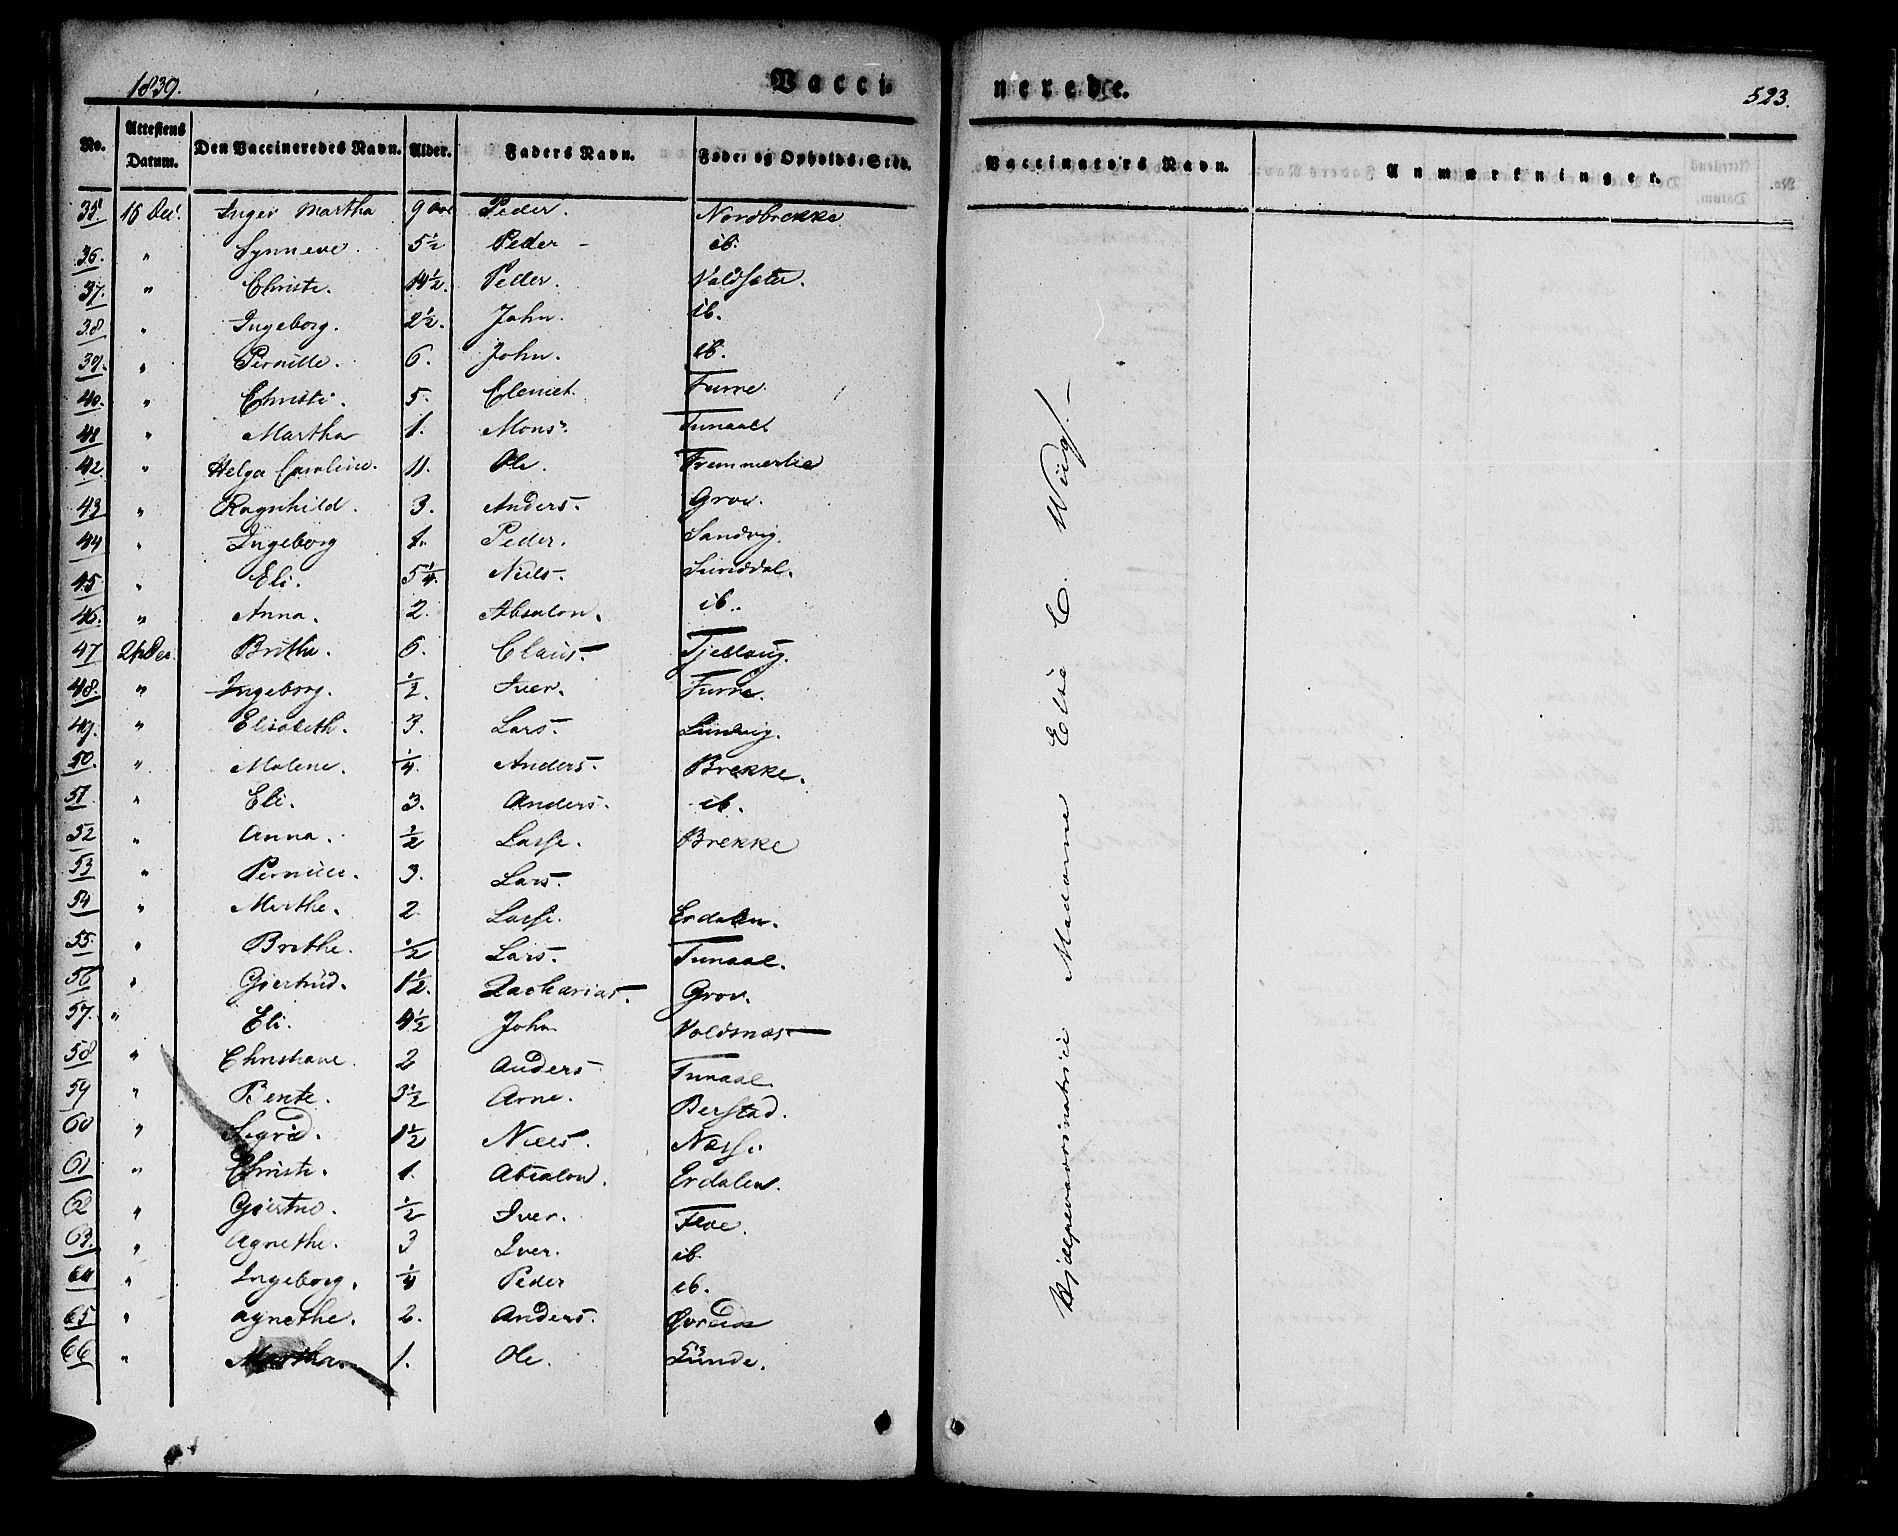 1839. Vacci- nerede. 523.
No. Attestens Datum. Den Vaccineredes Navn. Alder. Faders Navn. Føde- og Opholds-Sted. Vaccinateurs Navn. Anmærkninger.
35. 16 Dec. Inger Martha 9 Peder. Nordbrekke
36. " Synneve. 5½ Peder - ib.
37. " Christi. 14½. Peder.
38. " Ingeborg. 2½. John. ib.
39. " Pernille. 6. John. ib.
40. " Christi. 5. Clemet. Furre
41 " Martha 1. Mons.
42 " Helga Caroline. 11. Ole.
43 " Ragnhild. 3. Anders. Grov.
44 " Ingeborg 1. Peder. Sandvig.
45. " Eli. 5¼. Niels. Sunddal.
46. " Anna. 2. Absalon. ib.
47 Brithe. 6. Claus. Tjellaug.
48. " Ingeborg. ½. Iver. Furre.
49. " Elisabeth. 3. Lars.
50. " Malene. ¼. Anders. Brekke.
51 " Eli. 3. Anders. ib.
52 " Anna. ½ Lasse. Brekke
53 " Pernille. 3. Lars.
54 " Merthe. 2. Lasse. Erdalen.
55. " Brithe. ½ Lars. Tunaal.
56 " Giertrud. 1½. Zacharias. Grov.
57. " Eli. 4½ John. Voldsnæs.
58 " Christiane. 2 Anders Tunaal.
59 " Bente. 3½ Arne. Berstad.
60 " Sigrid. 1½ Niels. Næsse
61 " Christi. 1. Absalon. Erdalen.
62 " Giertrud. ½ Iver. Floe.
63. " Agnethe. 3 Iver. ib.
64 " Ingeborg. ¼ Peder ib.
65 " Agnethe. 2. Anders.
66 " Martha. 1. Ole. Sunde.
Hjælpevaccinatrice Madame Elie C. Wiig. -